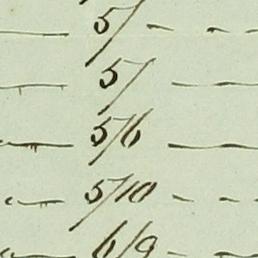 5/ - - -
5/ - -
- 5/6 - -
- 5/10 - - -
- 6/9 - -